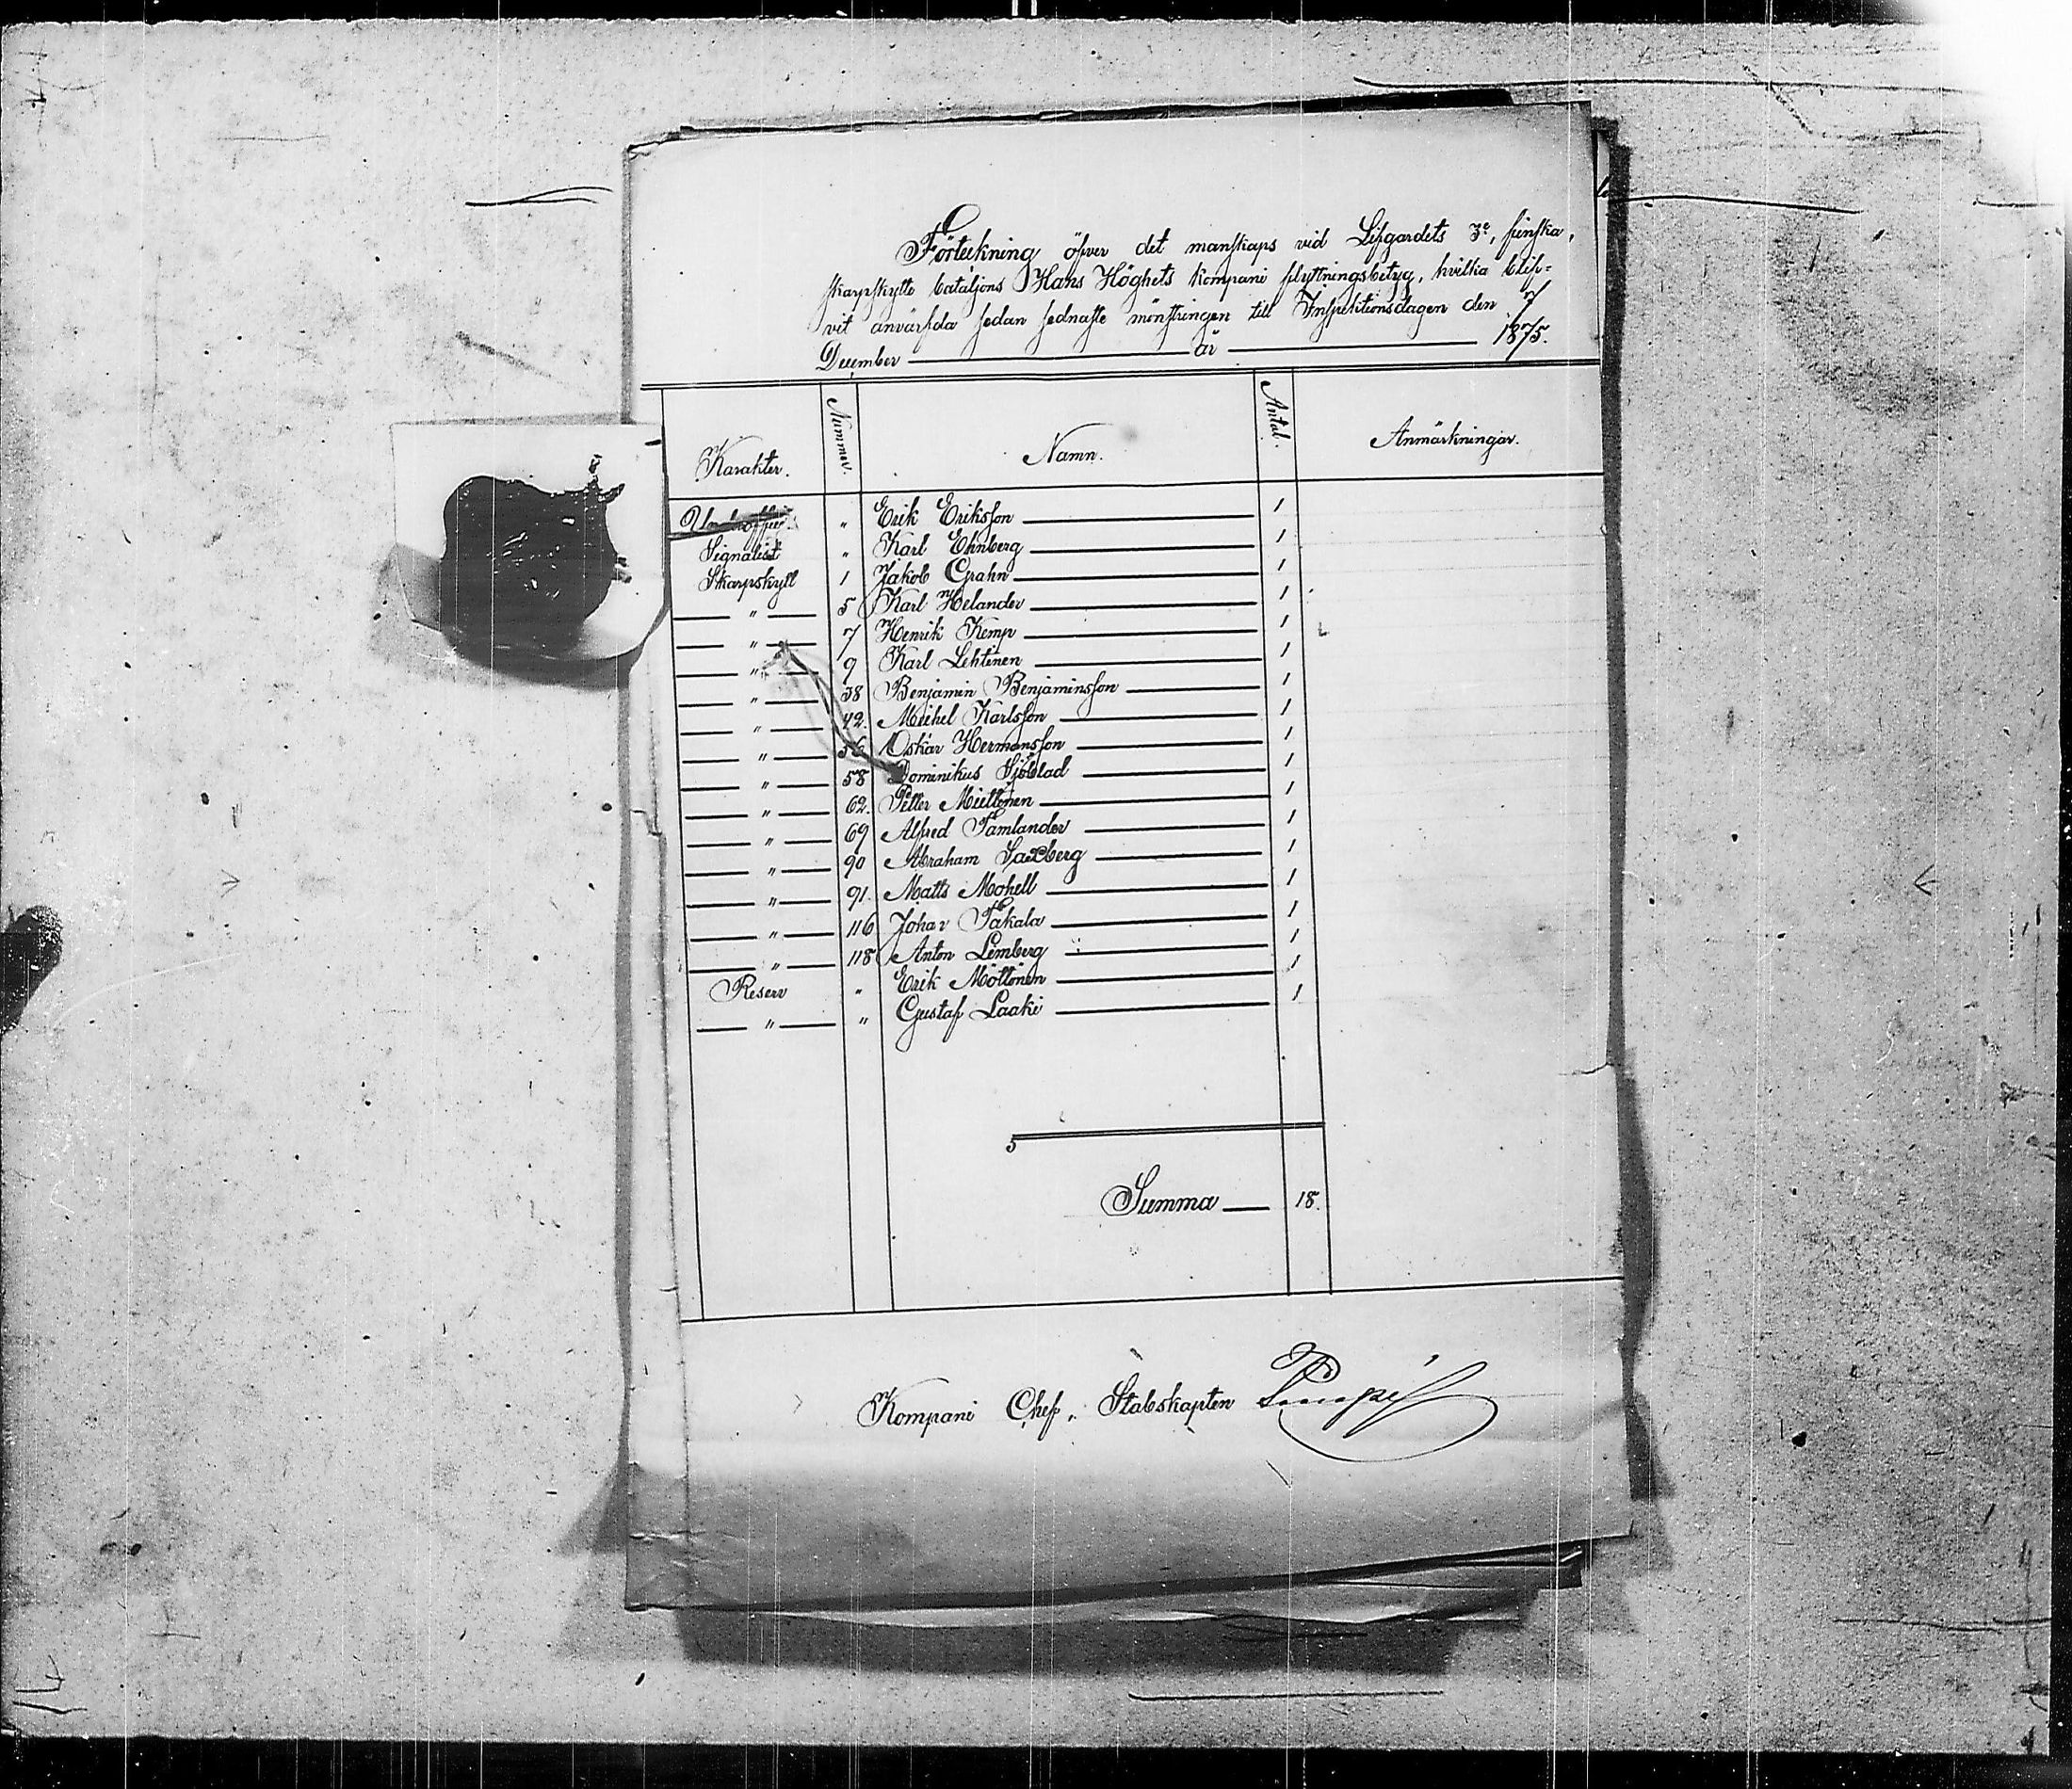 Förteckning öfver det manskaps vid Lifgardets 3e, finska,
skarpskytte bataljons Hans Höghets Kompani flyttningsbetyg, hvilka blif-
vit anvärfda sedan sednaste mönstringen till Inspektionsdagen den 7
December — år — 1875.
Karakter. Nummer. Namn. Antal. Anmärkningar.
Underofficer. " Erik Eriksson — 1
Signalist " Karl Ehnberg — 1
Skarpskytt 1 Jakob Grahn — 1
— " — 5 Karl Helander — 1
— " — 7 Henrik Kemp — 1
— " — 9 Karl Lehtinen — 1
— " — 38 Benjamin Benjaminsson — 1
— " — 42. Mickel Karlsson — 1
— " — 56 Oskar Hermansson — 1
— " — 58 Dominikus Sjöblad — 1
— " — 62. Petter Miettinen — 1
— " — 69 Alfred Tamlander — 1
— " — 90 Abraham Saxberg — 1
— " — 91. Matts Mohell — 1
— " — 116 Johan Takala — 1
— " — 118 Anton Lemberg — 1
Reserv " Erik Möttönen — 1
— " — " Gustaf Laaki — 1
Summa — 18.
Kompani Chef, Stabskapten